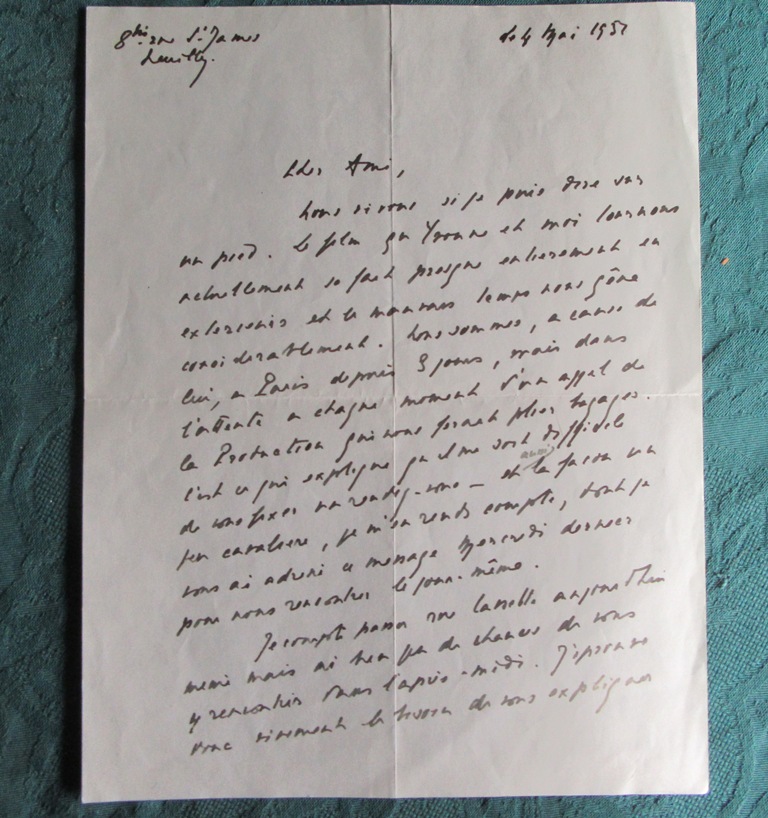 8bis rue St. James
Neuilly.
le 4 Mai 1951
Cher Ami,
Nous vivons si je puis dire sur
un pied. Le film qu Yvonne et moi tournons
actuellement se fait presque entierement en
exterieurs et le mauvais temps nous gêne
considerablement. Nous sommes, a cause de
lui, a Paris depuis 3 jours, mais dans
l'attente a chaque moment d'un appel de
la Production qui nous ferait plier bagages.
C'est ce qui explique qu il me soit difficile
de vous fixer un rendez-vous – et aussi la façon un
peu cavaliere, je m'en rends compte, dont je
vous ai adressé ce message Mercredi dernier
pour nous rencontrer le jour-même.
Je compte passer rue aujourd'hui
meme mais ai bien peu de chances de vous
y rencontrer dans l'après-midi. J'eprouve
donc vivement le besoin de vous expliquer